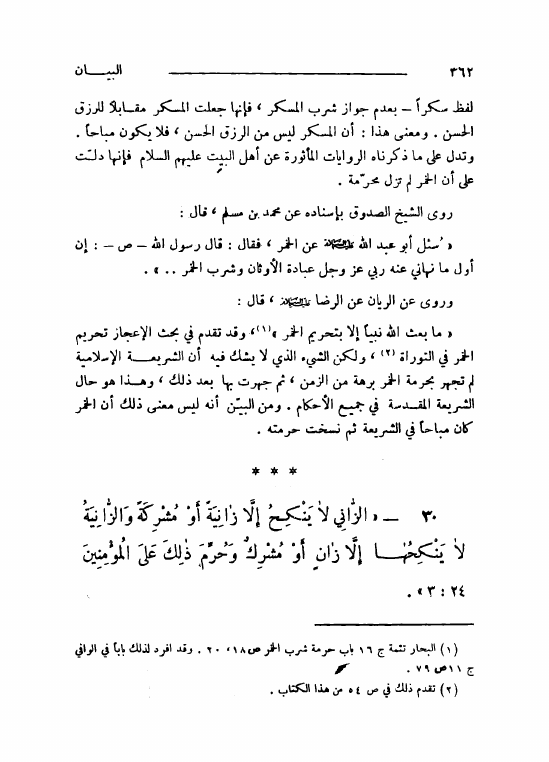 ٣٦٢ البيــان
لفظ سكراً – بعدم جواز شرب المسكر ، فإنها جعلت المسكر مقابلاً للرزق
الحسن . ومعنى هذا : أن المسكر ليس من الرزق الحسن ، فلا يكون مباحاً .
وتدل على ما ذكرناه الروايات المأثورة عن أهل البيت عليهم السلام فإنها دلّت
على أن الخمر لم تزل محرّمة .
روى الشيخ الصدوق بإسناده عن محمد بن مسلم ، قال :
« سُئل أبو عبد الله عن الخمر ، فقال : قال رسول الله – ص – : إن
أول ما نهاني عنه ربي عز وجل عبادة الأوثان وشرب الخمر .. » .
وروى عن الريان عن الرضا ، قال :
« ما بعث الله نبياً إلا بتحريم الخمر »(١)، وقد تقدم في بحث الإعجاز تحريم
الخمر في التوراة (٢) ، ولكن الشيء الذي لا يشك فيه أن الشريعــة الإسلامية
لم تجهر بحرمة الخمر برهة من الزمن ، ثم جهرت بها بعد ذلك ، وهــذا هو حال
الشريعة المقدسة في جميع الأحكام . ومن البيّن أنه ليس معنى ذلك أن الخمر
كان مباحاً في الشريعة ثم نسخت حرمته .
* * *
٣٠ – « الزَّاني لاَ يَنْكِحُ إلَّا زَانِيَةً أَوْ مُشْرِكَةً وَالزَّانِيَةُ
لاَ يَنْكِحُهَــا إلَّا زَانٍ أَوْ مُشْرِكٌ وَحُرِّمَ ذٰلِكَ عَلَى المُؤْمِنِينَ
٢٤ : ٣ » .
(١) البحار تتمة ج ١٦ باب حرمة شرب الخمر ص ١٨، ٢٠ . وقد افرد لذلك باباً في الوافي
ج ١١ ص ٧٩ .
(٢) تقدم ذلك في ص ٥٤ من هذا الكتاب .